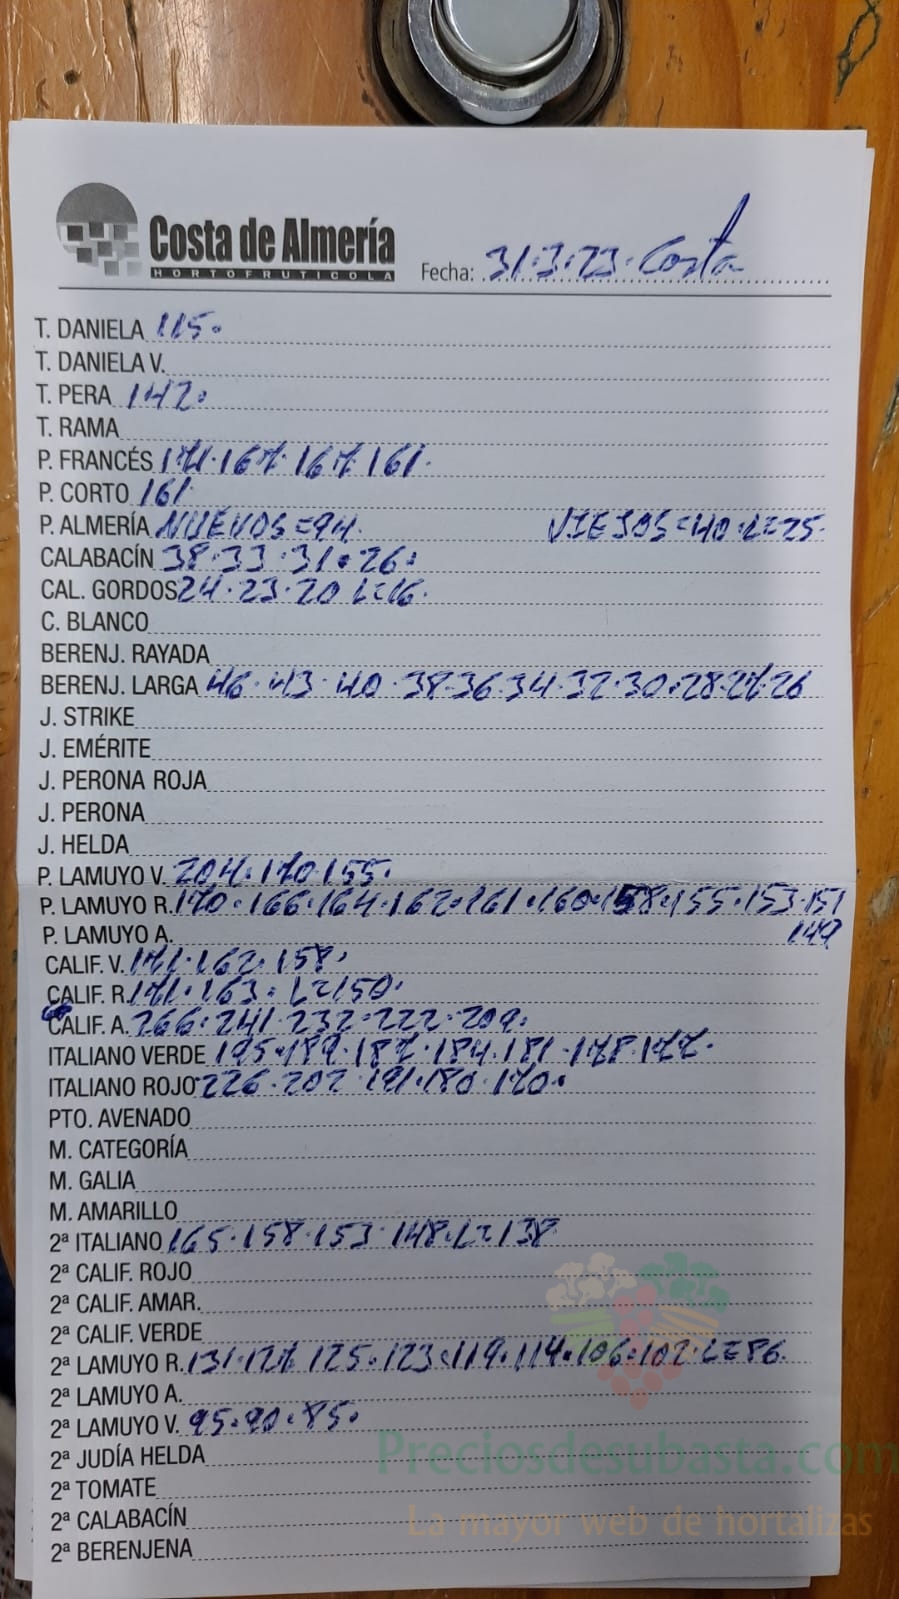 Costa de Almería
HORTOFRUTICOLA
Fecha: 31·3·23· Costa
T. DANIELA 115·
T. DANIELA V.
T. PERA 142·
T. RAMA
P. FRANCÉS 171·167·167·161·
P. CORTO 161·
P. ALMERÍA NUEVOS=94· VIEJOS=40·L=25·
CALABACÍN 38·33·31·26·
CAL. GORDOS 24·23·20 L=16·
C. BLANCO
BERENJ. RAYADA
BERENJ. LARGA 46·43·40·38·36·34·32·30·28·27·26
J. STRIKE
J. EMÉRITE
J. PERONA ROJA
J. PERONA
J. HELDA
P. LAMUYO V. 204·170·155·
P. LAMUYO R. 170·166·164·162·161·160·158·155·153·151
P. LAMUYO A. 149
CALIF. V. 171·162·158·
CALIF. R. 171·163·L=150·
CALIF. A. 266·241·232·222·209·
ITALIANO VERDE 195·189·187·184·181·178·177·
ITALIANO ROJO 226·202·191·180·170·
PTO. AVENADO
M. CATEGORÍA
M. GALIA
M. AMARILLO
2ª ITALIANO 165·158·153·148·L=138
2ª CALIF. ROJO
2ª CALIF. AMAR.
2ª CALIF. VERDE
2ª LAMUYO R. 131·127·125·123·119·114·106·102·L=86·
2ª LAMUYO A.
2ª LAMUYO V. 95·90·85·
2ª JUDÍA HELDA
Preciosdesubasta.com
2ª TOMATE
2ª CALABACÍN
La mayor web de hortalizas
2ª BERENJENA